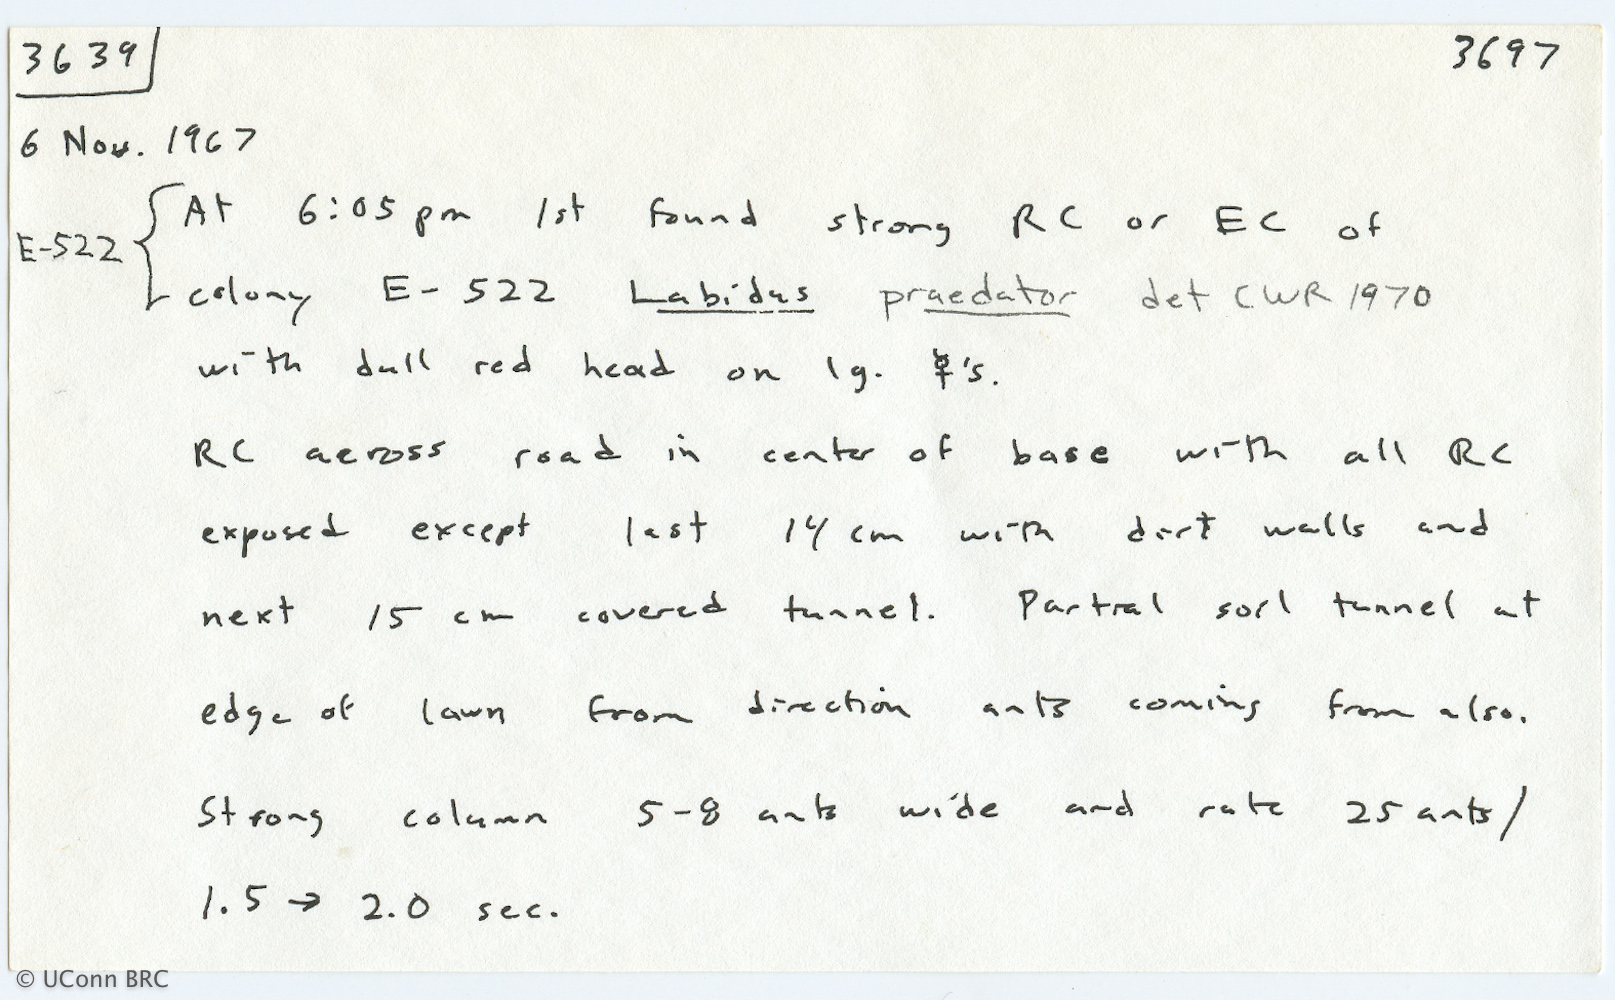 3639
3697
6 Nov. 1967
E-522
At 6:05 pm 1st found strong RC or EC of
colony E-522 Labidus praedator det CWR 1970
with dull red head on lg. ☿'s.
RC across road in center of base with all RC
exposed except last 14 cm with dirt walls and
next 15 cm covered tunnel. Partial soil tunnel at
edge of lawn from direction ants coming from also.
Strong column 5-8 ants wide and rate 25 ants/
1.5 → 2.0 sec.
© UConn BRC